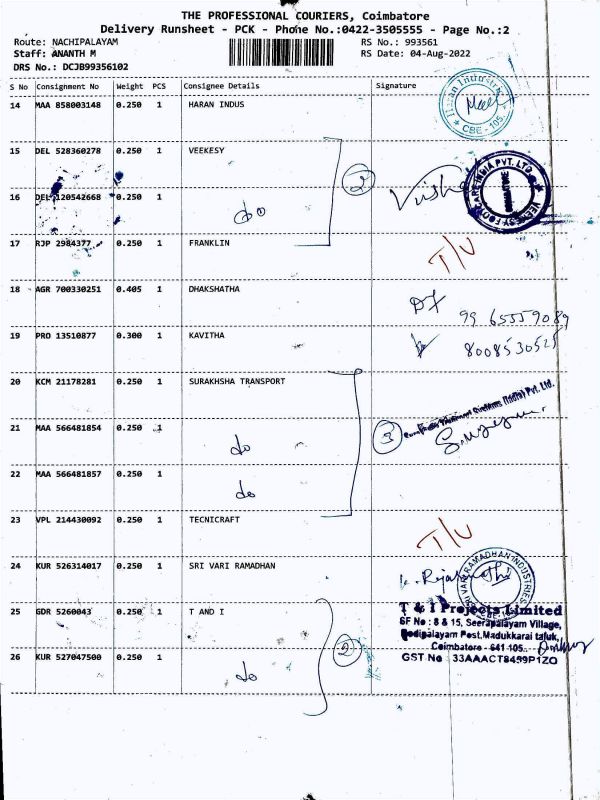 THE PROFESSIONAL COURIERS, Coimbatore
Delivery Runsheet - PCK - Phone No.:0422-3505555 - Page No.:2
Route: NACHIPALAYAM RS No.: 993561
Staff: ANANTH M RS Date: 04-Aug-2022
DRS No.: DCJB99356102
S No Consignment No Weight PCS Consignee Details Signature
14 MAA 858003148 0.250 1 HARAN INDUS
CBE - 105
15 DEL 528360278 0.250 1 VEEKESY
2
16 DEL 120542668 0.250 1 do
17 RJP 2984377 0.250 1 FRANKLIN T/U
18 AGR 700330251 0.405 1 DHAKSHATHA
19 PRO 13510877 0.300 1 KAVITHA
20 KCM 21178281 0.250 1 SURAKHSHA TRANSPORT
21 MAA 566481854 0.250 1 do 3
22 MAA 566481857 0.250 1 do
23 VPL 214430092 0.250 1 TECNICRAFT T/U
24 KUR 526314017 0.250 1 SRI VARI RAMADHAN
25 GDR 5260043 0.250 1 T AND I
T & I Projects Limited
SF No : 8 & 15, Seerapalayam Village,
Bodipalayam Post, Madukkarai taluk,
Coimbatore - 641 105.
GST No : 33AAACT8459P1ZO
26 KUR 527047500 0.250 1 do 2